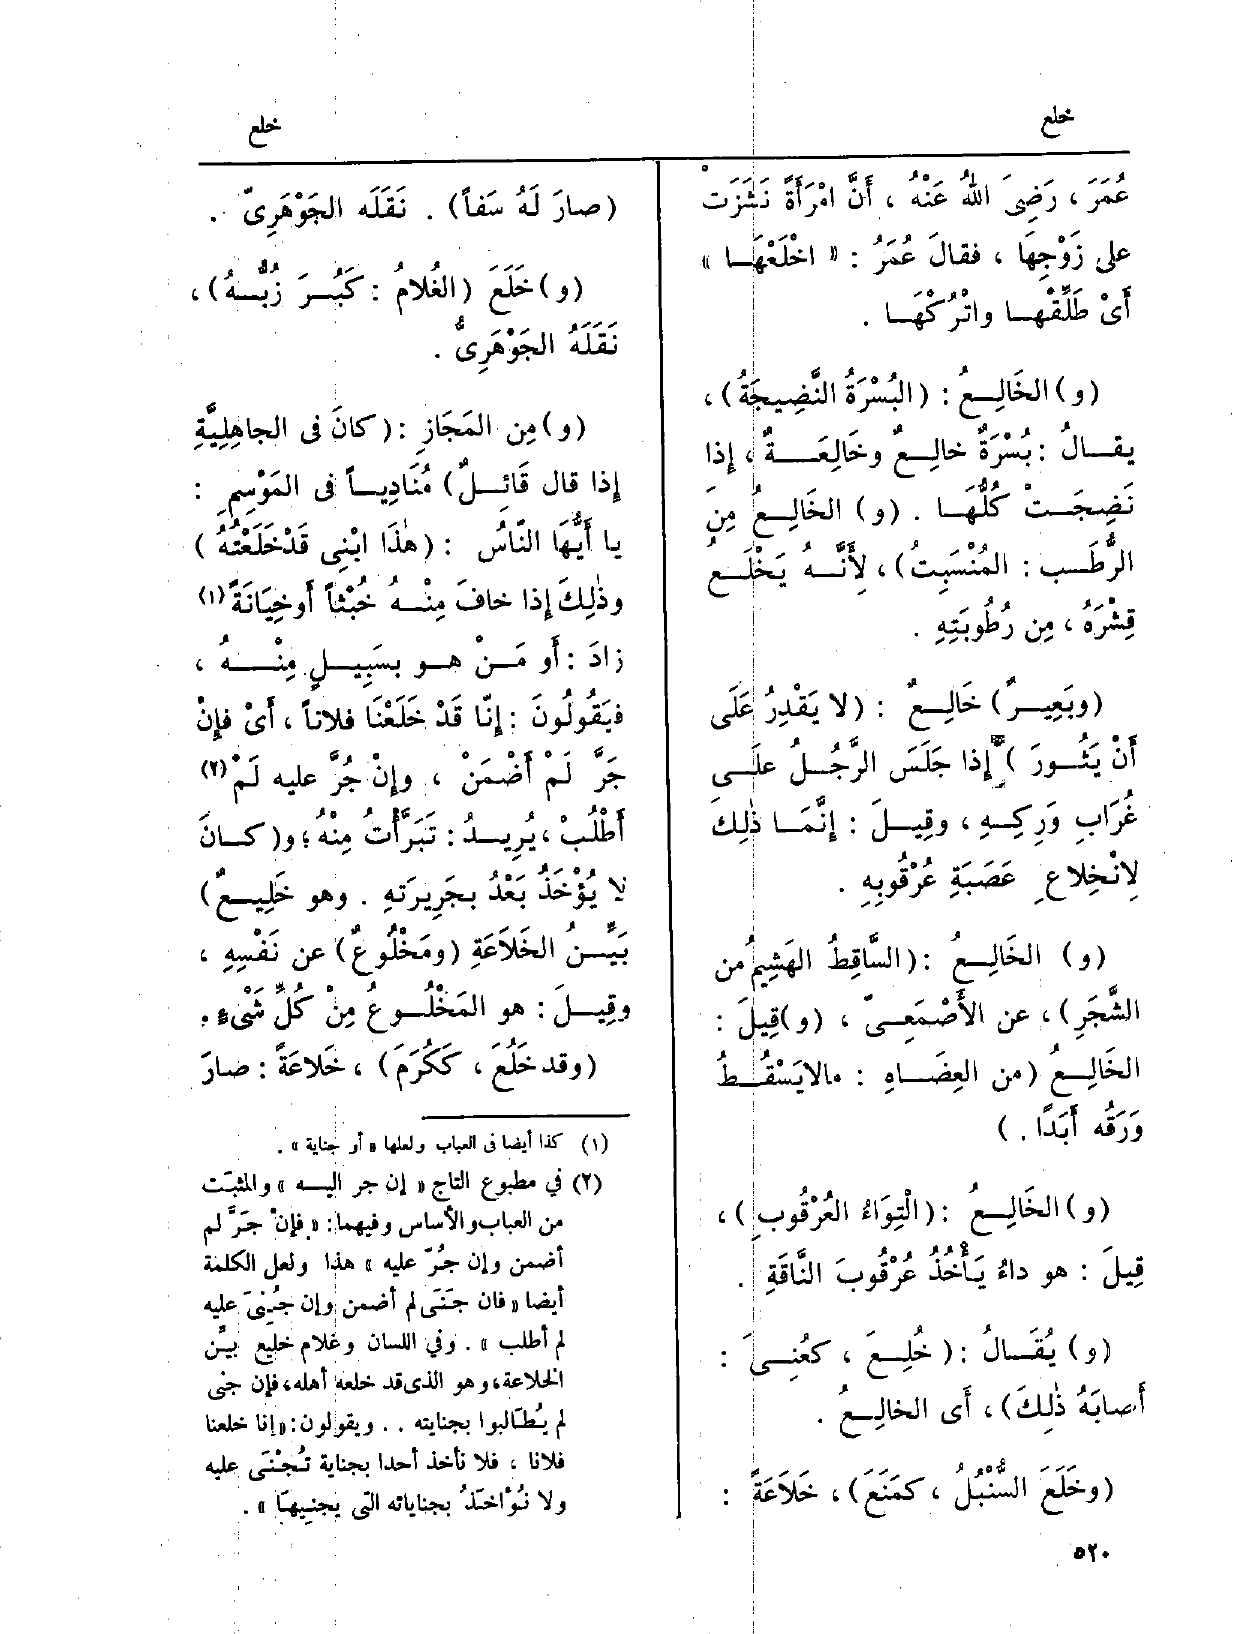 خلع
خلع
عُمَرَ ، رَضِىَ اللهُ عَنْهُ ، أَنَّ امْرَأَةً نَشَزَتْ
على زَوْجِهَا ، فقالَ عُمَرُ : « اخْلَعْهَـا »
أَىْ طَلِّقْهـا واتْرُكْهَـا .
(و) الخَالِـعُ : (البُسْرَةُ النَّضِيجَةُ) ،
يقـالُ : بُسْرَةٌ خالِـعٌ وخَالِعَـةٌ ، إذا
نَضِجَـتْ كُلُّهَـا . (و) الخَالِـعُ مِن
الرُّطَـب : المُنْسَبِتُ) ، لِأَنَّـهُ يَخْلَـع
قِشْرَهُ ، مِن رُطُوبَتِهِ .
(وبَعِيـرٌ) خَالِـعٌ : (لا يَقْدِرُ عَلَى
أَنْ يَثُـورَ ) إذا جَلَسَ الرَّجُـلُ علَـى
غُرَابِ وَرِكِـهِ ، وقِيـلَ : إنَّمَـا ذٰلِكَ
لِانْخِلاعِ عَصَبَةِ عُرْقُوبِهِ .
(و) الخَالِـعُ : (السَّاقِطُ الهَشِيمُ من
الشَّجَرِ) ، عن الأَصْمَعِـىّ ، (و)قِيلَ :
الخَالِـعُ (من العِضَـاهِ : مالا يَسْقُـطُ
وَرَقُه أَبَدًا . )
(و) الخَالِـعُ : (الْتِوَاءُ العُرْقُوبِ) ،
قِيلَ : هو داءٌ يَأْخُذُ عُرْقُوبَ النَّاقَةِ .
(و) يُقَـالُ : ( خُلِـعَ ، كعُنِـىَ :
أَصابَهُ ذٰلِكَ) ، أَى الخالِـعُ .
(وخَلَعَ السُّنْبُلُ ، كمَنَعَ) ، خَلَاعَةً :
(صارَ لَهُ سَفاً) . نَقَلَه الجَوْهَرِىّ .
(و) خَلَعَ (الغُلامُ : كَبُـرَ زُبُّـهُ) ،
نَقَلَهُ الجَوْهَرِىُّ .
(و)مِن المَجَازِ : (كانَ فى الجاهِلِيَّةِ
إذا قال قَائِـلٌ) مُنَادِيـاً فى المَوْسِمِ :
يا أَيُّهَا النَّاسُ : (هٰذَا ابْنِى قَدْ خَلَعْتُهُ )
وذٰلِكَ إذا خافَ مِنْـهُ خُبْثاً أَو خِيَانَةً (١)
زادَ : أَو مَـنْ هـو بسَبِيـلٍ مِنْـهُ ،
فيَقُولُونَ : إنَّا قَدْ خَلَعْنَا فلاناً ، أَىْ فإِنْ
جَرَّ لَمْ أَضْمَنْ ، وإِنْ جُرَّ عليه لَمْ (٢)
أَطْلُبْ ، يُرِيـدُ : تَبَرَّأْتُ مِنْهُ ؛ و(كـانَ
لا يُؤْخَذُ بَعْدُ بجَرِيرَتهِ . وهو خَلِيـعٌ)
بَيِّـنُ الخَلَاعَةِ (ومَخْلُوعٌ) عن نَفْسِهِ ،
وقِيـلَ : هو المَخْلُـوعُ مِنْ كُلِّ شَىْءٍ .
(وقد خَلُعَ ، كَكُرَمَ) ، خَلَاعَةً : صارَ
(١) كذا أيضا فى العباب ولعلها « أو جناية » .
(٢) في مطبوع التاج « إن جر اليـه » والمثبت
من العباب والأساس وفيهما : « فإنْ جَرَّ لم
أضمن وإن جُرّ عليه » هذا ولعل الكلمة
أيضا « فان جَنَى لم أضمن وإن جُنِىَ عليه
لم أطلب » . وفي اللسان وغلام خليع بيّن
الخلاعة ، وهو الذى قد خلعه أهله ، فإن جنى
لم يُطَالبوا بجنايته . . ويقولون : « إنا خلعنا
فلانا ، فلا نأخذ أحدا بجناية تُجْنَى عليه
ولا نُؤاخَذُ بجناياته التى يجنيهَا » .
٥٢٠